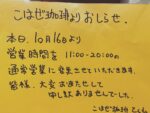 こはぜ珈琲よりおしらせ.
本日.10月16日より
営業時間を 11:00-20:00の
通常営業に変更させていただきます.
皆様.大変お待たせして
申し訳ありませんでした.
こはぜ珈琲